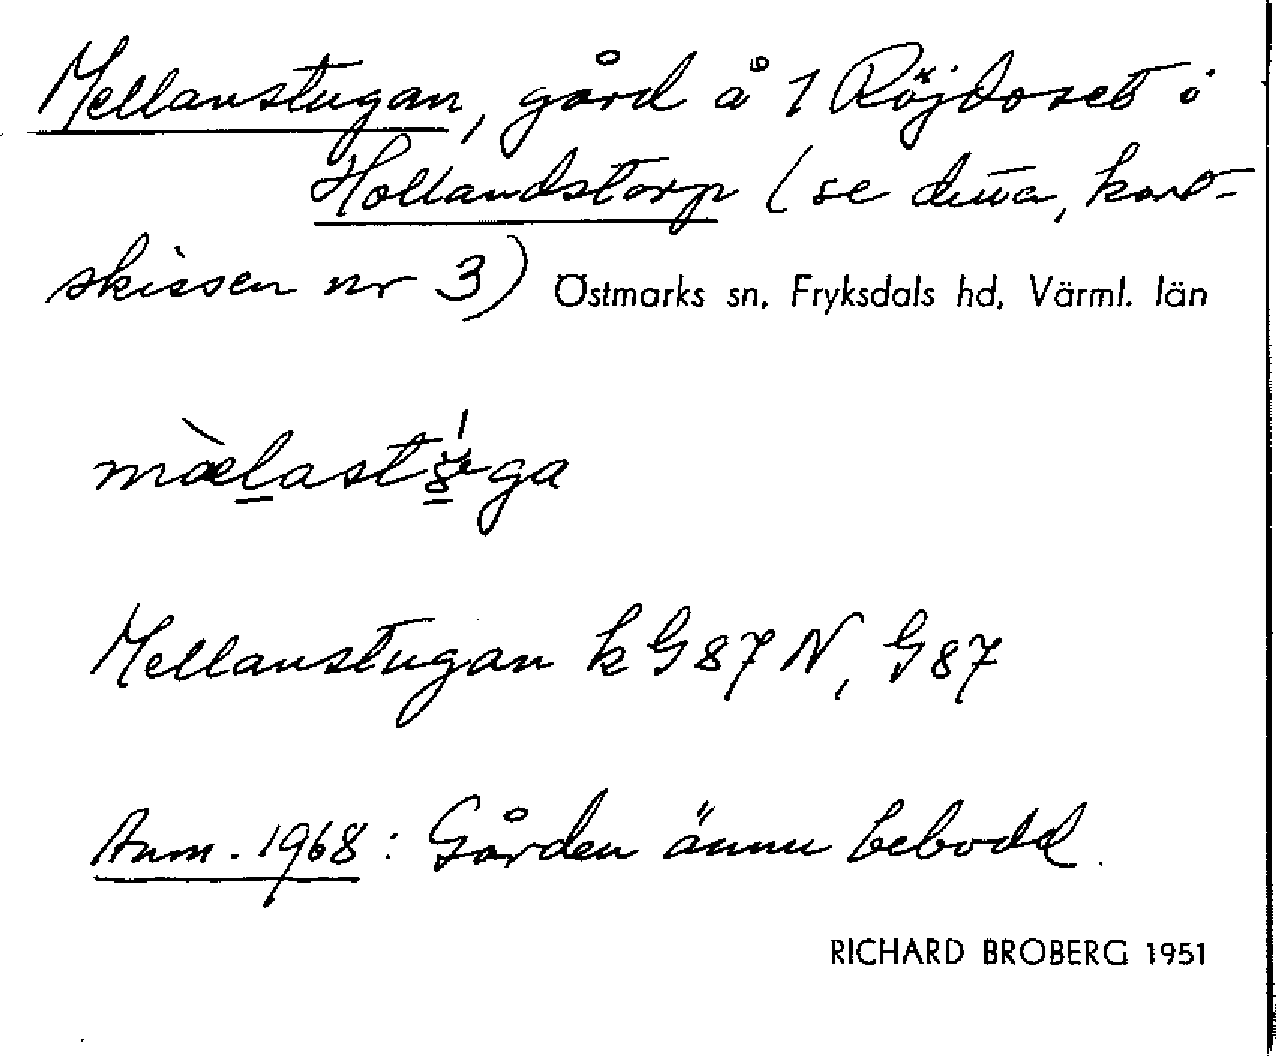 Mellanstugan, gård å 1 Röjdoset i
Hollandstorp (se detta, kart-
skissen nr 3) Östmarks sn, Fryksdals hd, Värml. län
Mellanstugan k G 87 N, G 87
Anm. 1968: Gården ännu bebodd.
RICHARD BROBERG 1951